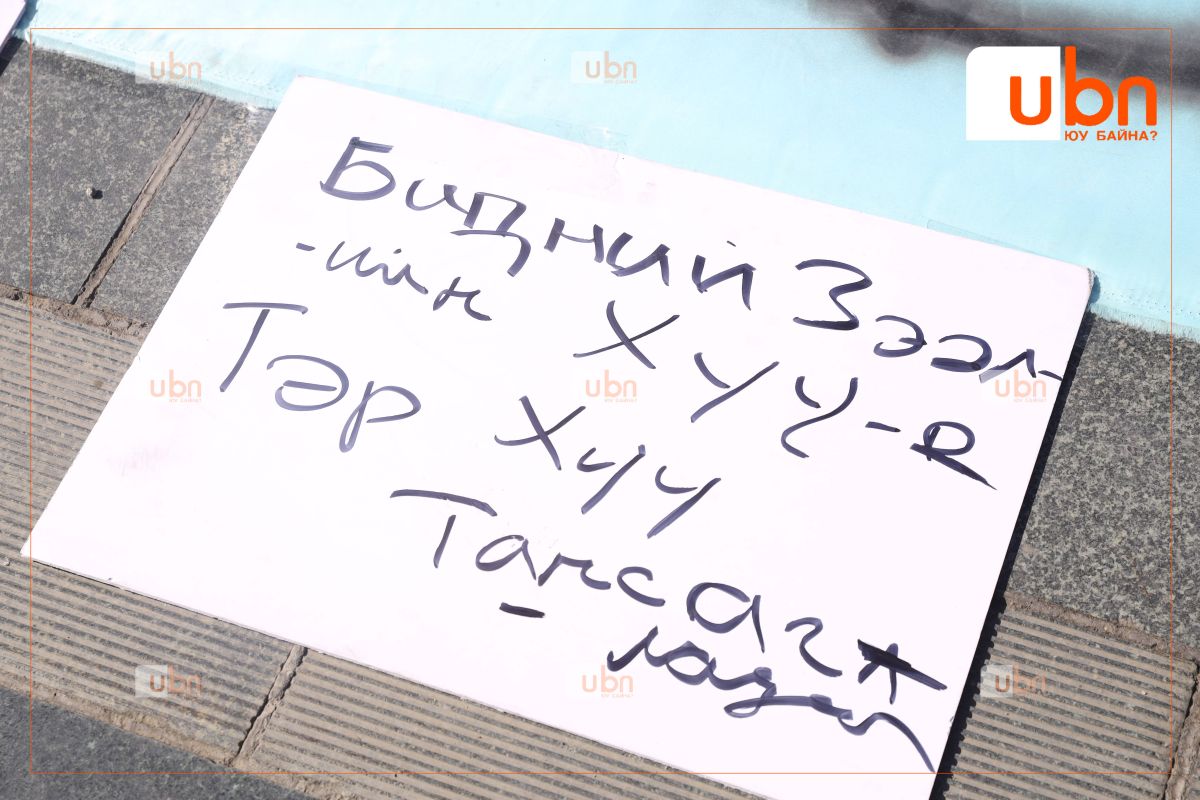 ubn
ЮУ БАЙНА?
Бидний Зээл-
-ийн ХҮҮ-р
Тэр Хүү
Тансаг